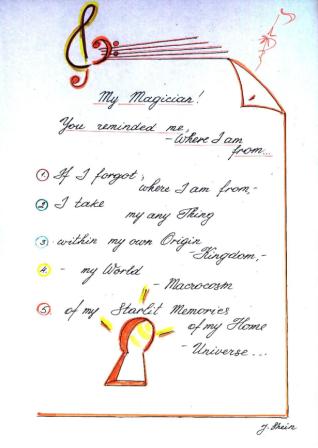 My Magician!
You reminded me,
- Where I am
from...
1 If I forgot,
where I am from,-
2 I take
my any Thing
3 within my own Origin
- Kingdom,-
4. - my World
- Macrocosm
5 of my Starlit Memories
of my Home
- Universe...
J. Shein